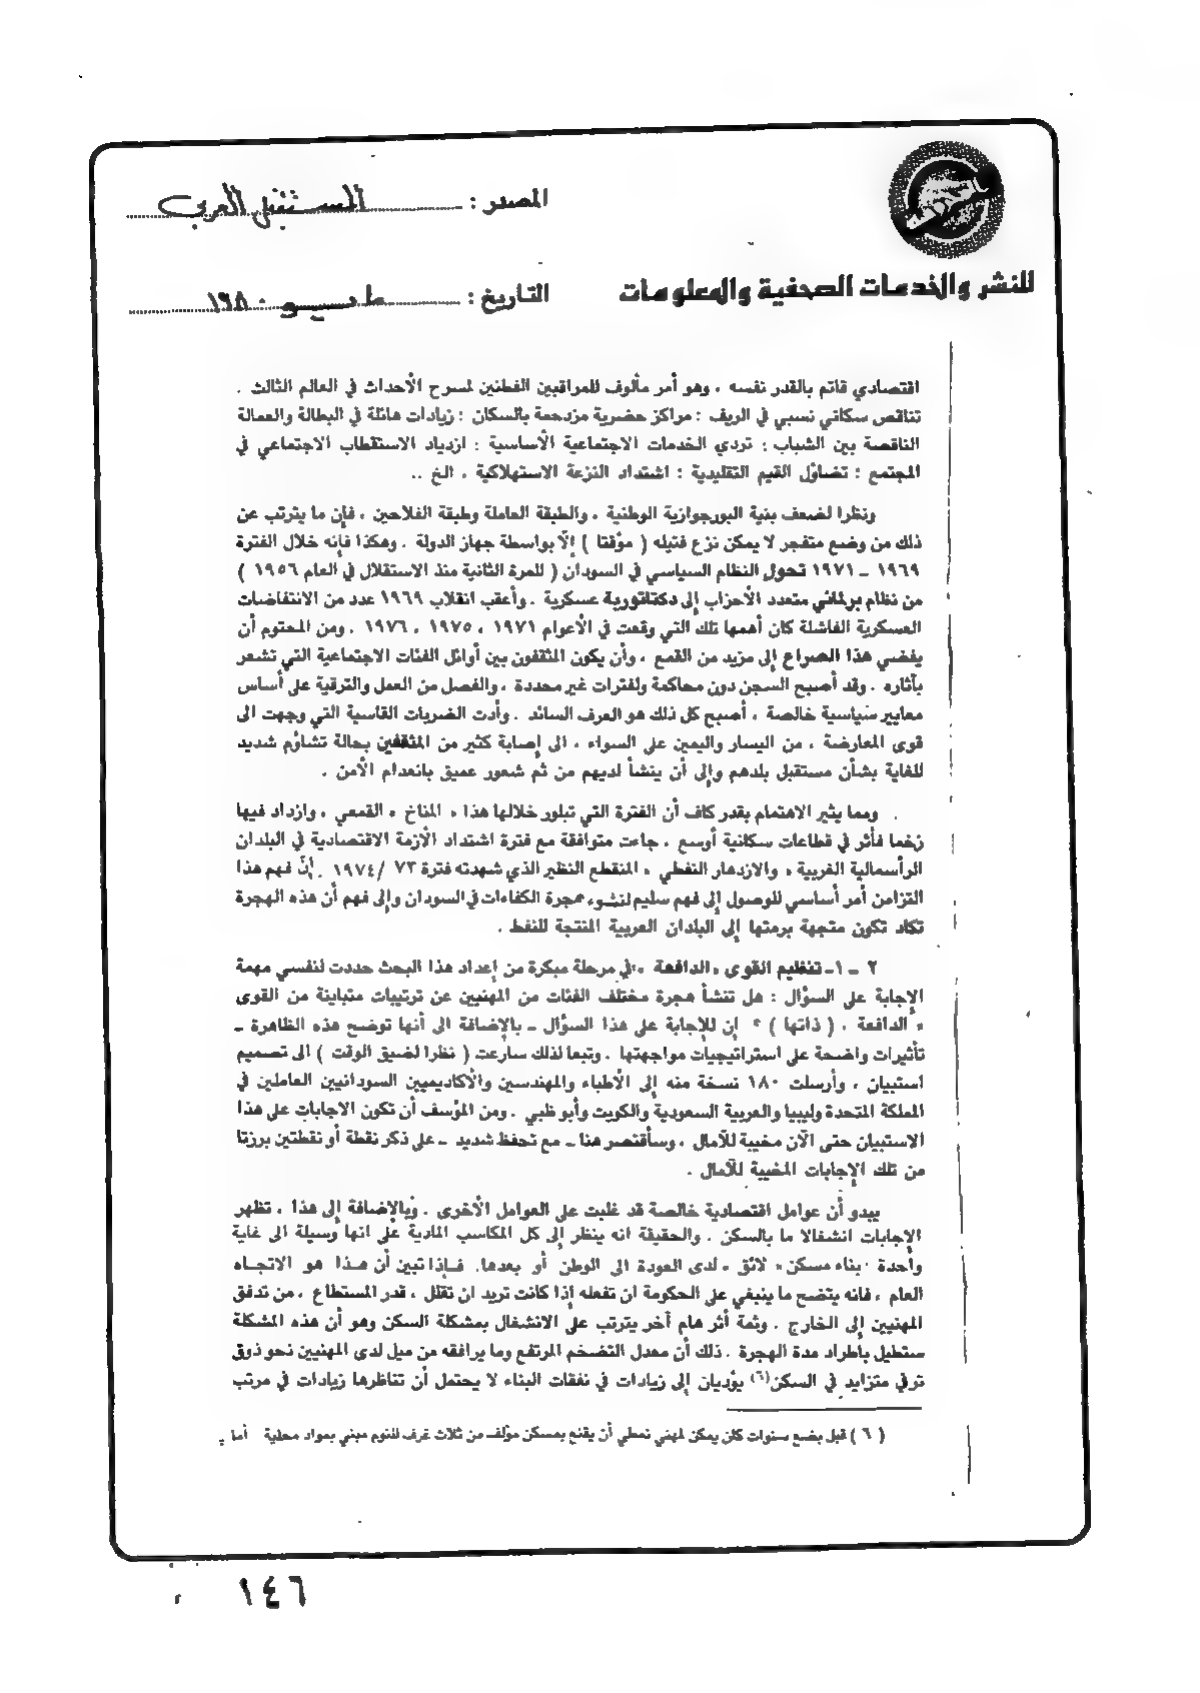 المصدر : المستقبل العربي
للنشر والخدمات الصحفية والمعلومات
التاريخ : مايو ١٩٨٠
اقتصادي قائم بالقدر نفسه ، وهو أمر مألوف للمراقبين الفطنين لمسرح الأحداث في العالم الثالث .
تناقص سكاني نسبي في الريف : مراكز حضرية مزدحمة بالسكان : زيادات هائلة في البطالة والعمالة
الناقصة بين الشباب : تردي الخدمات الاجتماعية الأساسية : ازدياد الاستقطاب الاجتماعي في
المجتمع : تضاؤل القيم التقليدية : اشتداد النزعة الاستهلاكية ، الخ ..
ونظرا لضعف بنية البورجوازية الوطنية ، والطبقة العاملة وطبقة الفلاحين ، فإن ما يترتب عن
ذلك من وضع متفجر لا يمكن نزع فتيله ( مؤقتا ) إلّا بواسطة جهاز الدولة . وهكذا فإنه خلال الفترة
١٩٦٩ ـ ١٩٧١ تحول النظام السياسي في السودان ( للمرة الثانية منذ الاستقلال في العام ١٩٥٦ )
من نظام برلماني متعدد الأحزاب إلى دكتاتورية عسكرية . وأعقب انقلاب ١٩٦٩ عدد من الانتفاضات
العسكرية الفاشلة كان أهمها تلك التي وقعت في الأعوام ١٩٧١ ، ١٩٧٥ ، ١٩٧٦ . ومن المحتوم أن
يفضي هذا الصراع إلى مزيد من القمع ، وأن يكون المثقفون بين أوائل الفئات الاجتماعية التي تشعر
بآثاره . وقد أصبح السجن دون محاكمة ولفترات غير محددة ، والفصل من العمل والترقية على أساس
معايير سياسية خالصة ، أصبح كل ذلك هو العرف السائد . وأدت الضربات القاسية التي وجهت الى
قوى المعارضة ، من اليسار واليمين على السواء ، الى إصابة كثير من المثقفين بحالة تشاؤم شديد
للغاية بشأن مستقبل بلدهم وإلى أن ينشأ لديهم من ثم شعور عميق بانعدام الأمن .
ومما يثير الاهتمام بقدر كاف أن الفترة التي تبلور خلالها هذا « المناخ » القمعي ، وازداد فيها
زخما فأثر في قطاعات سكانية أوسع ، جاءت متوافقة مع فترة اشتداد الأزمة الاقتصادية في البلدان
الرأسمالية الغربية « والازدهار النفطي » المنقطع النظير الذي شهدته فترة ٧٣ /١٩٧٤ . إنّ فهم هذا
التزامن أمر أساسي للوصول إلى فهم سليم لنشوء هجرة الكفاءات في السودان وإلى فهم أن هذه الهجرة
تكاد تكون متجهة برمتها إلى البلدان العربية المنتجة للنفط .
٢ ـ ١ـ تنظيم القوى « الدافعة » : في مرحلة مبكرة من إعداد هذا البحث حددت لنفسي مهمة
الإجابة على السؤال : هل تنشأ هجرة مختلف الفئات من المهنيين عن ترتيبات متباينة من القوى
« الدافعة » ( ذاتها ) ؟ إن للإجابة على هذا السؤال ـ بالإضافة الى أنها توضح هذه الظاهرة ـ
تأثيرات واضحة على استراتيجيات مواجهتها . وتبعا لذلك سارعت ( نظرا لضيق الوقت ) الى تصميم
استبيان ، وأرسلت ١٨٠ نسخة منه إلى الأطباء والمهندسين والأكاديميين السودانيين العاملين في
المملكة المتحدة وليبيا والعربية السعودية والكويت وأبو ظبي . ومن المؤسف أن تكون الاجابات على هذا
الاستبيان حتى الآن مخيبة للآمال ، وسأقتصر هنا ـ مع تحفظ شديد ـ على ذكر نقطة أو نقطتين برزتا
من تلك الإجابات المخيبة للآمال .
يبدو أن عوامل اقتصادية خالصة قد غلبت على العوامل الأخرى . وبالإضافة إلى هذا ، تظهر
الإجابات انشغالا ما بالسكن . والحقيقة انه ينظر إلى كل المكاسب المادية على انها وسيلة الى غاية
واحدة « بناء مسكن » لائق ، لدى العودة الى الوطن أو بعدها. فإذا تبين أن هذا هو الاتجاه
العام ، فانه يتضح ما ينبغي على الحكومة ان تفعله إذا كانت تريد ان تقلل ، قدر المستطاع ، من تدفق
المهنيين إلى الخارج . وثمة أثر هام آخر يترتب على الانشغال بمشكلة السكن وهو أن هذه المشكلة
ستطيل بأطراد مدة الهجرة . ذلك أن معدل التضخم المرتفع وما يرافقه من ميل لدى المهنيين نحو ذوق
ترفي متزايد في السكن(٦) يؤديان إلى زيادات في نفقات البناء لا يحتمل أن تناظرها زيادات في مرتب
( ٦ ) قبل بضع سنوات كان يمكن لمهني نمطي أن يقنع بمسكن مؤلف من ثلاث غرف للنوم مبني بمواد محلية أما
١٤٦